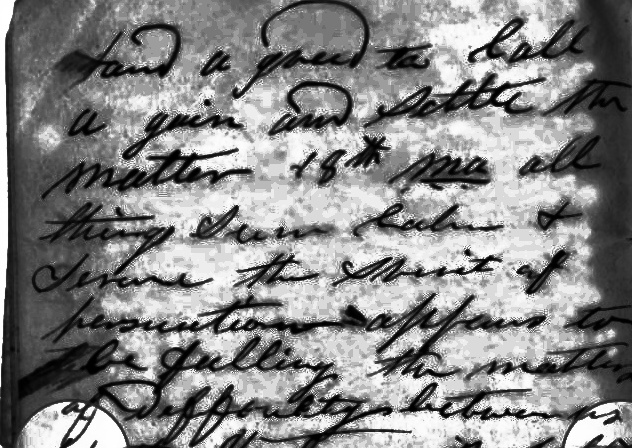 and agreed to call
a gain and settle the
matter 18th ma all
things seem calm &
Serene the spirit of
persicution appears to
be falling the matter
of Deffoultys between us